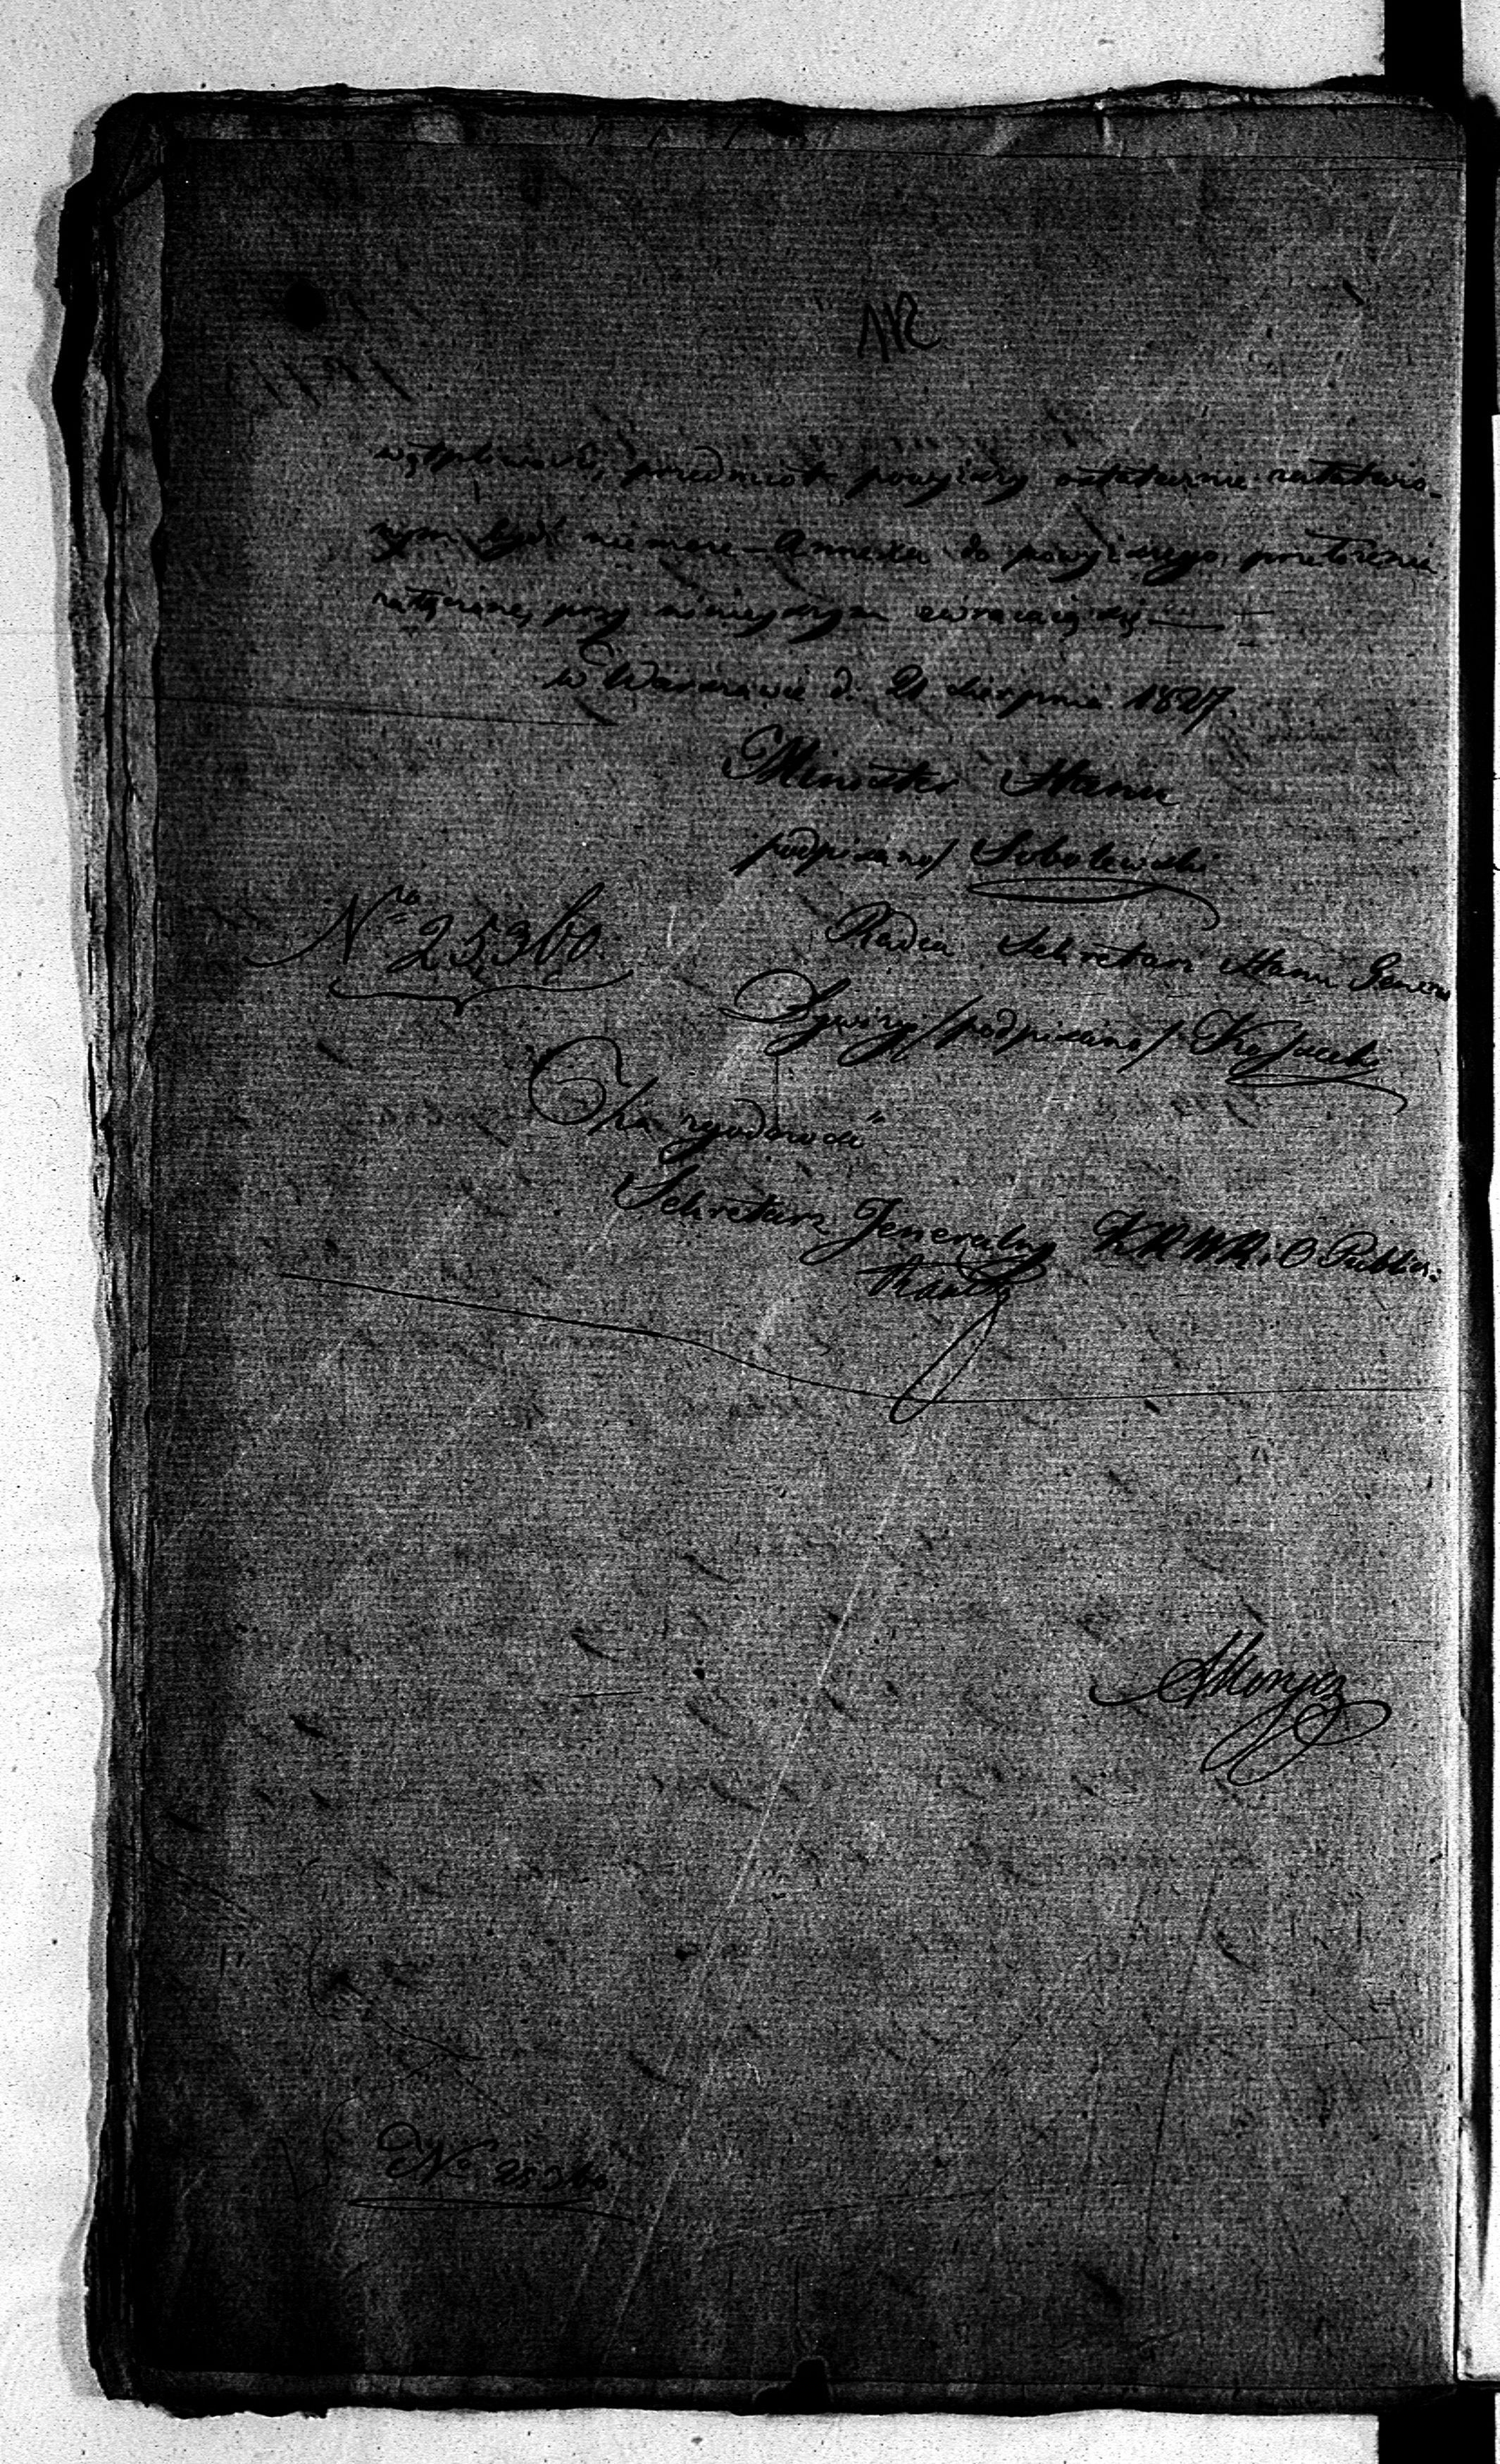 wątpliwości, przedmiot powyższy ostatecznie załatwio-
nym bydź nie może – Annexa do powyższego przełożenia
załączone, przy ninieyszym zwracaią się
w Warszawie d. 21 sierpnia 1827
Minister Stanu
podpisano/ Sobolewski
Nro 25,360.
Radca Sekretarz Stanu Genera
Brygady /podpisano/ Kossecki
Za zgodność
Sekretarz Jeneralny K R W R i O Public:
No 25360